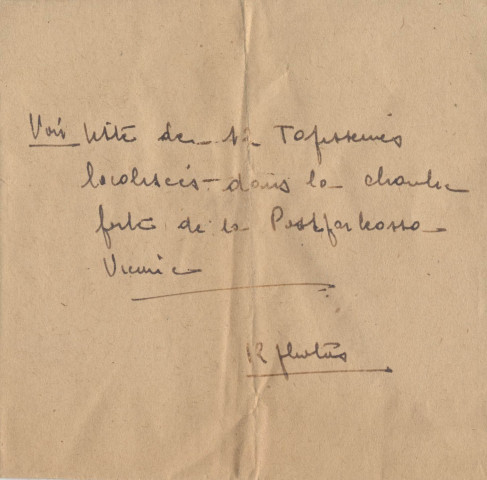 Voir liste de 12 Tapisseries
localisées dans la chambre
forte de la Postsparkassa
Vienne
12 photos